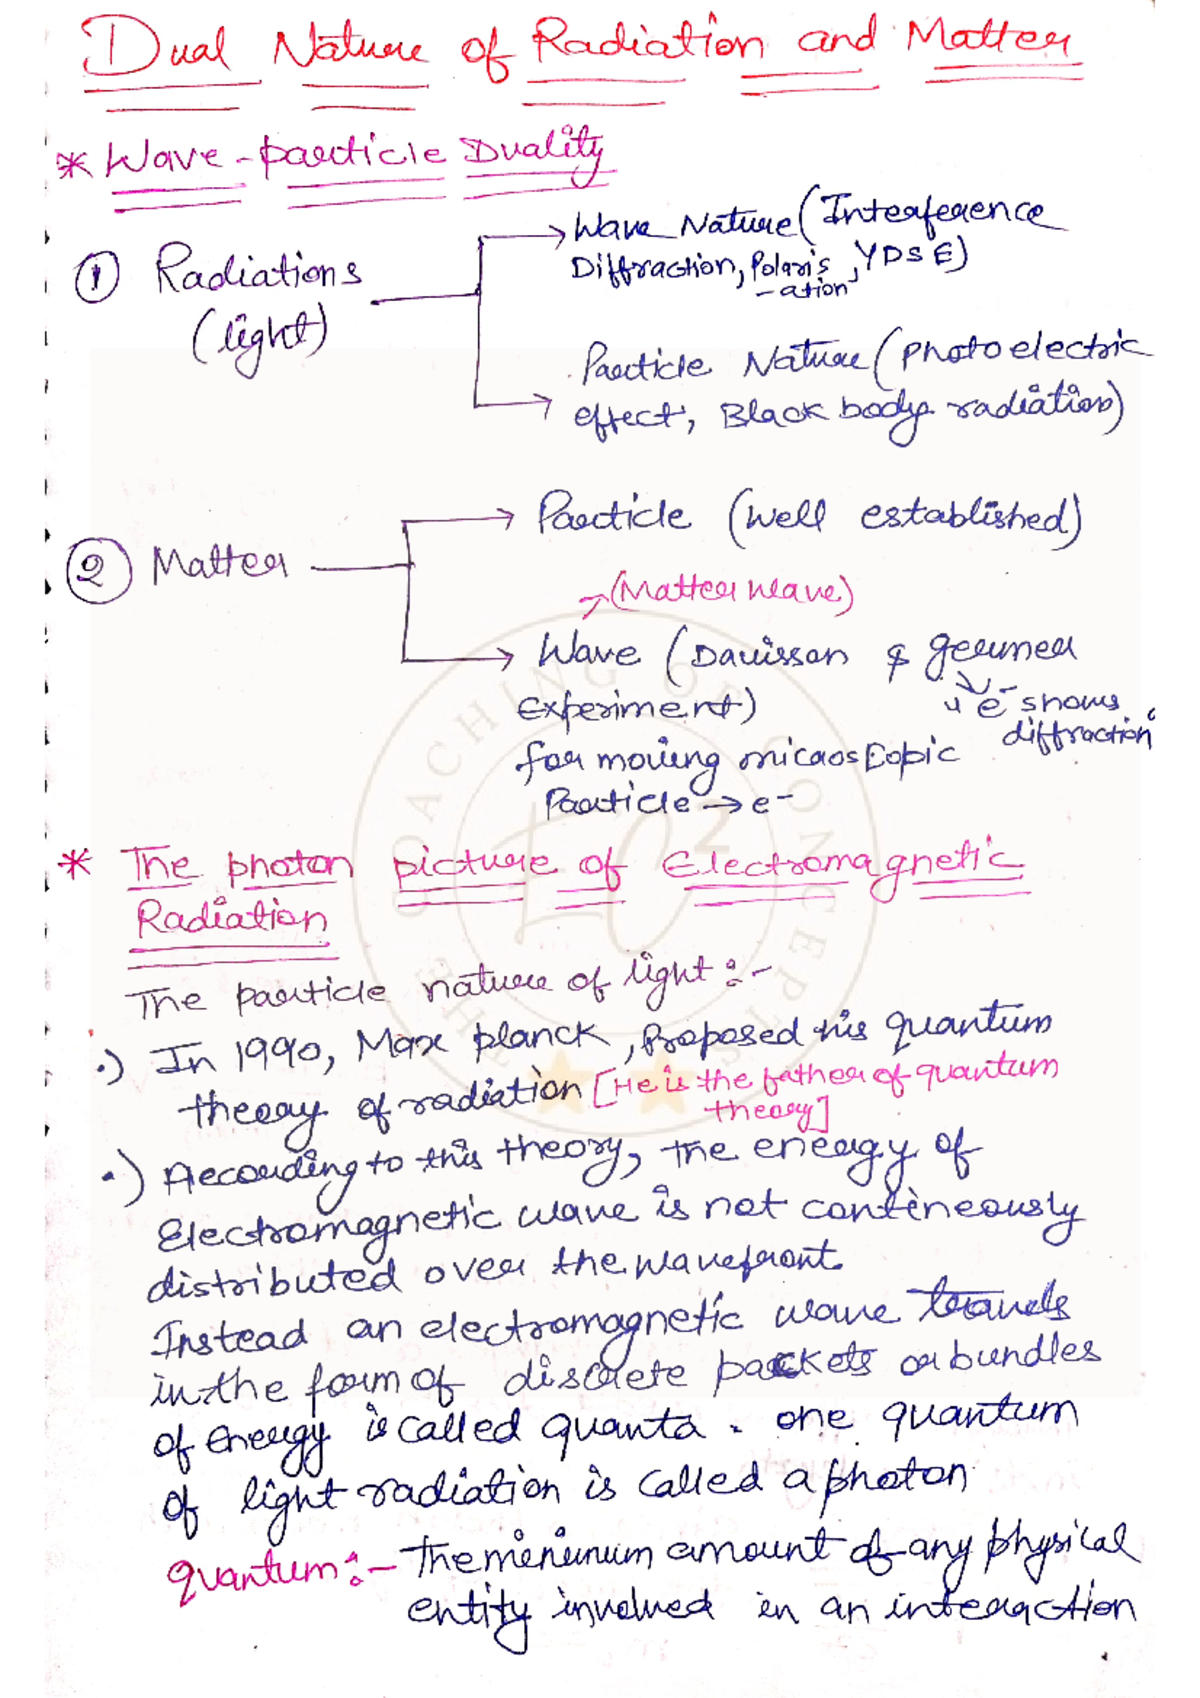 Dual Nature of Radiation and Matter
* Wave-particle Duality
① Radiations
(light)
→ Wave Nature (Interference
Diffraction, Polaris, YDSE)
-ation
Particle Nature (photoelectric
→ effect, Black body radiation)
② Matter
→ Particle (well established)
→ (Matter wave)
→ Wave (Davisson & germer
Experiment)
e⁻ shows
diffraction
for moving microscopic
Particle → e⁻
* The photon picture of Electromagnetic
Radiation
The particle nature of light :-
.) In 1990, Max planck, Proposed his quantum
theory of radiation [He is the father of quantum
theory]
.) According to this theory, the energy of
Electromagnetic wave is not contineously
distributed over the wavefront.
Instead an electromagnetic wave travels
in the form of discrete packets or bundles
of energy is called quanta. one quantum
of light radiation is called a photon
quantum :- The minimum amount of any physical
entity involved in an interaction
THE COACHING OF CONCEPTS